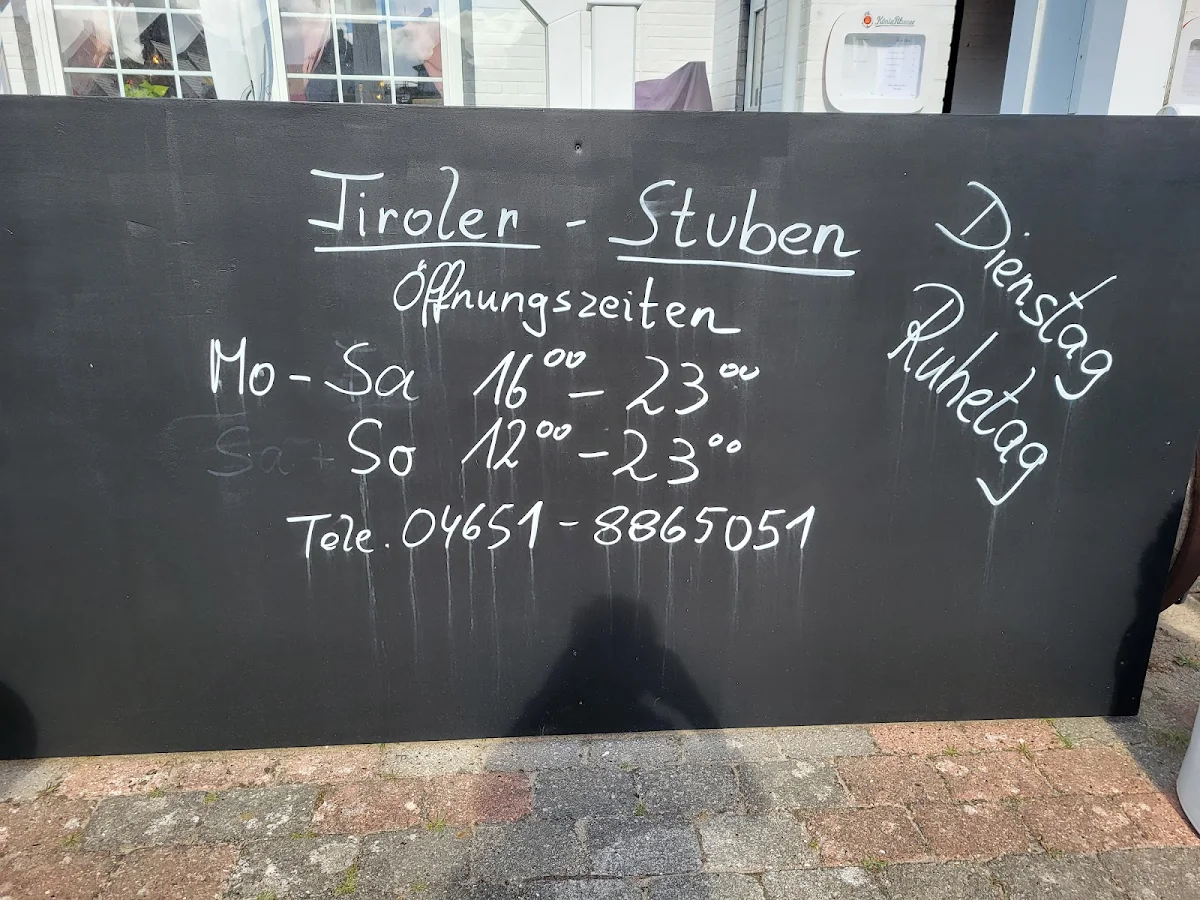 König Pilsener
Tiroler - Stuben
Öffnungszeiten
Mo - Sa 16⁰⁰ - 23⁰⁰
Sa + So 12⁰⁰ - 23⁰⁰
Tele. 04651 - 8865051
Dienstag
Ruhetag